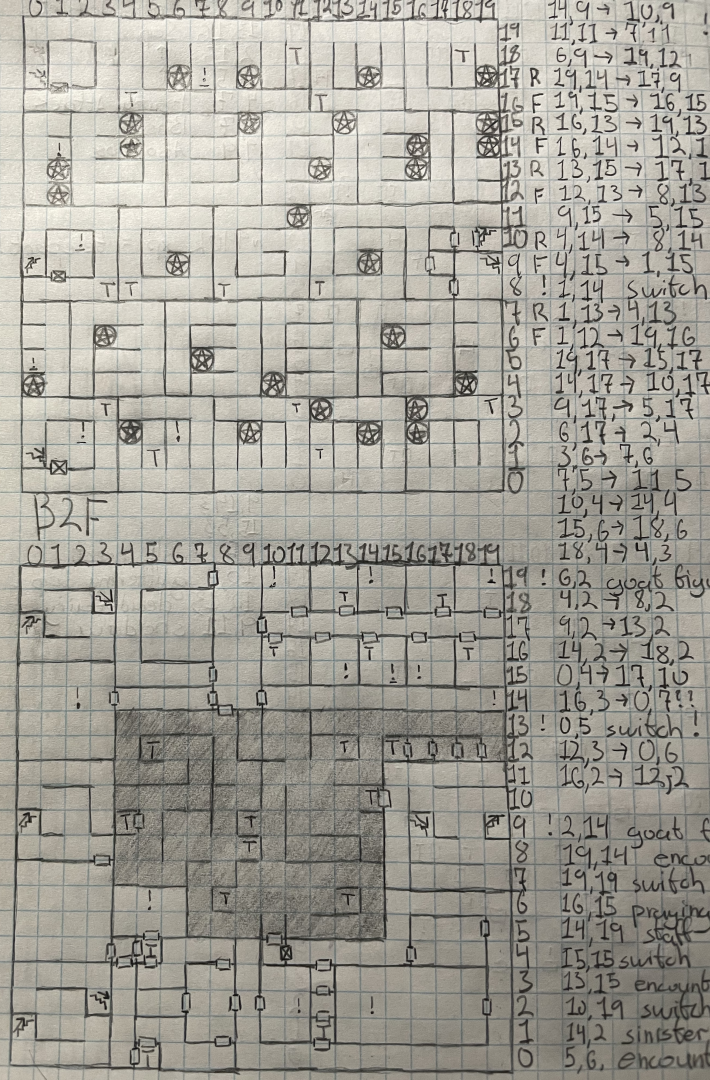 0 1 2 3 4 5 6 7 8 9 10 11 12 13 14 15 16 17 18 19
14,9 → 10,9
19 11,11 → 7,11 !
18 6,9 → 19,12
17 R 19,14 → 17,9
16 F 19,15 → 16,15
15 R 16,13 → 19,13
14 F 16,14 → 12,1
13 R 13,15 → 17,1
12 F 12,13 → 8,13
11 9,15 → 5,15
10 R 4,14 → 8,14
9 F 4,15 → 1,15
8 ! 1,14 switch
7 R 1,13 → 4,13
6 F 1,12 → 19,16
5 19,17 → 15,17
4 14,17 → 10,17
3 9,17 → 5,17
2 6,17 → 2,4
1 3,6 → 7,6
0 7,5 → 11,5
B2F
10,4 → 14,4
15,6 → 18,6
0 1 2 3 4 5 6 7 8 9 10 11 12 13 14 15 16 17 18 19
18,4 → 4,3
19 ! 6,2 goat figu
18 4,2 → 8,2
17 9,2 → 13,2
16 14,2 → 18,2
15 0,4 → 17,10
14 16,3 → 0,7??
13 ! 0,5 switch !
12 12,3 → 0,6
11 16,2 → 12,2
10
9 ! 2,14 goat f
8 19,14 enco
7 19,19 switch
6 16,15 praying
5 14,19 staff
4 15,15 switch
3 13,15 encount
2 10,19 switch
1 14,2 sinister,
0 5,6, encount